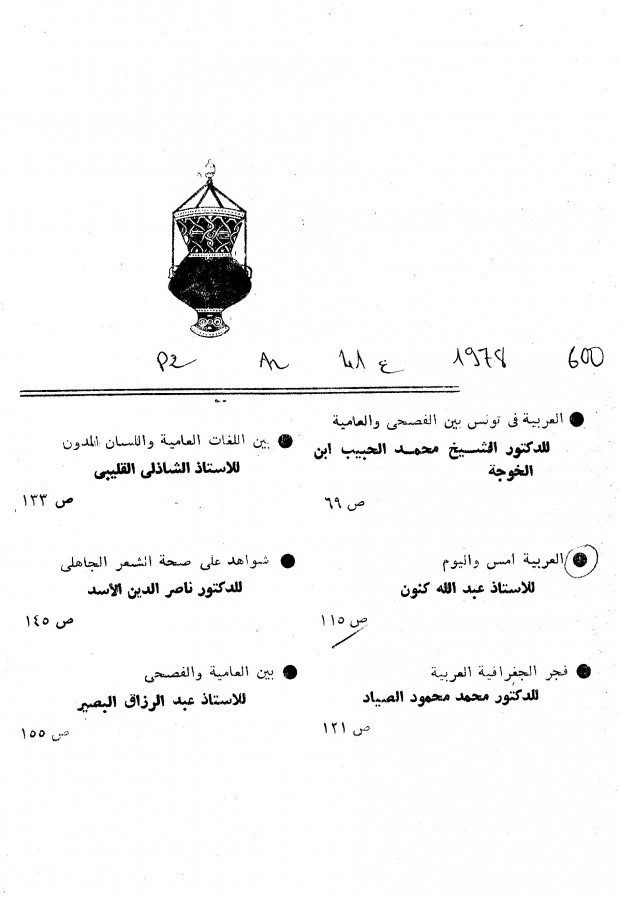 1978 600
● العربية فى تونس بين الفصحى والعامية
للدكتور الشـيخ محمـد الحبيب ابن
الخوجة
ص ٦٩
● العربية أمس واليوم
للاستاذ عبد الله كنون
ص ١١٥
● فجر الجغرافية العربية
للدكتور محمد محمود الصياد
ص ١٢١
● بين اللغات العامية واللسان المدون
للاستاذ الشاذلى القليبى
ص ١٣٣
● شواهد على صحة الشعر الجاهلى
للدكتور ناصر الدين الأسد
ص ١٤٥
● بين العامية والفصحى
للاستاذ عبد الرزاق البصير
ص ١٥٥